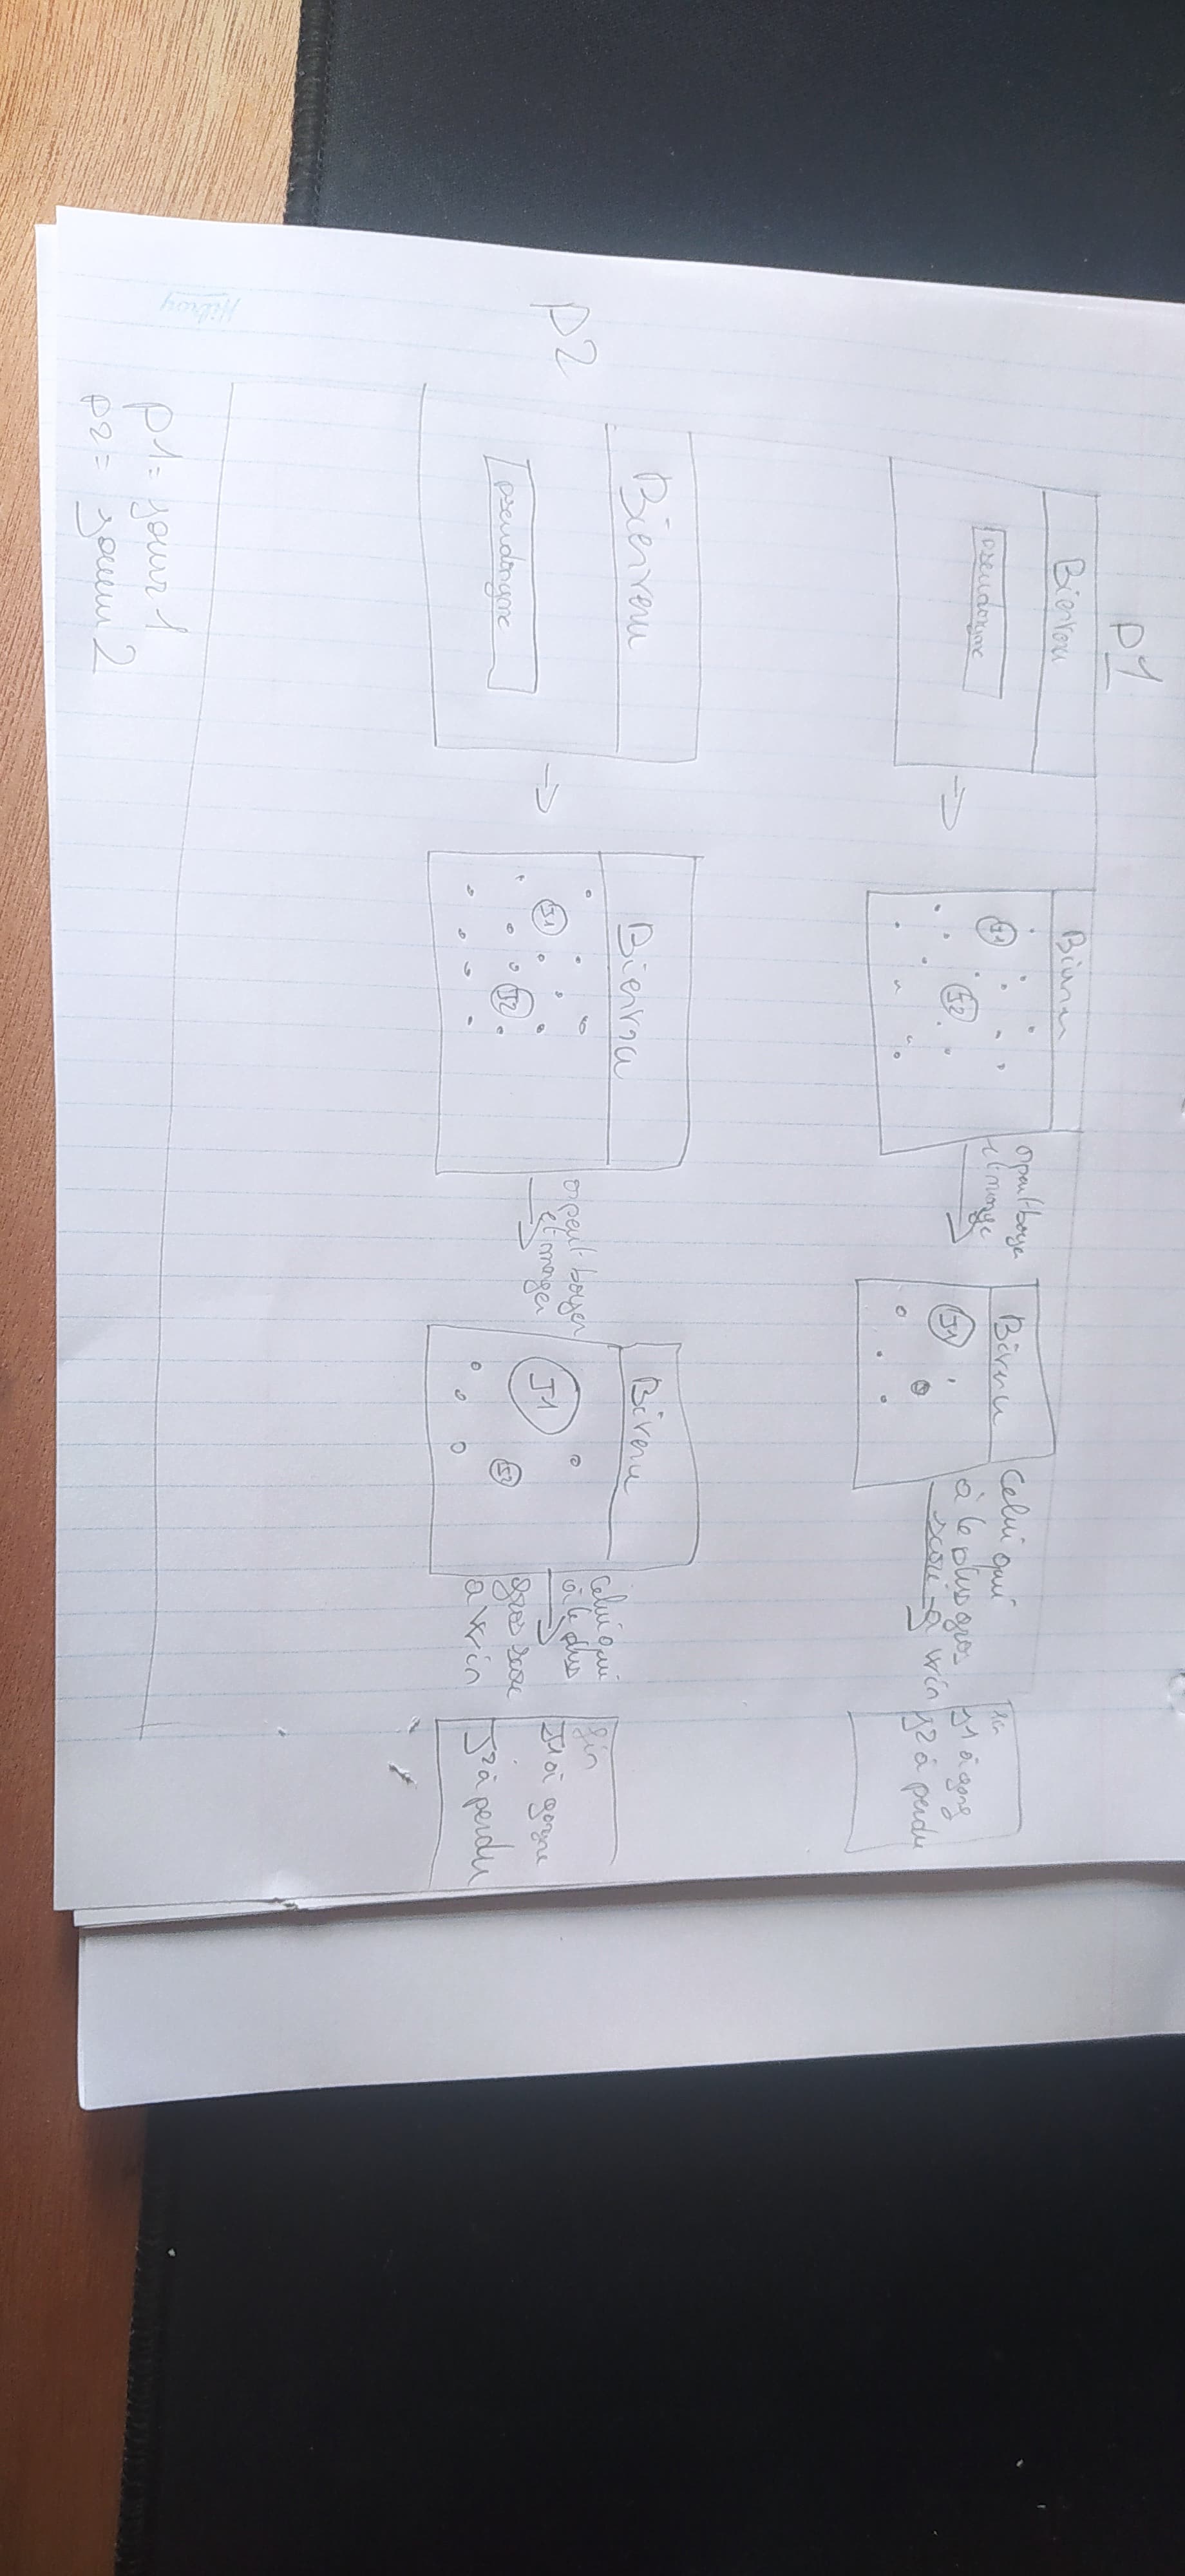 P1
Bienvou
pseudonyme
→
Bienvnu
J1
J2
o peut bouger
et manger
Bienvnu
J1
Celui qui
à le plus gros
score à win
fin
J1 à gang
J2 à perdu
P2
Bienvenu
pseudonyme
→
Bienvnu
J1
J2
o peut bouger
et manger
Bivenu
J1
J2
Celui qui
à le plus
gros score
à win
fin
J1 à gagne
J2 à perdu
P1 = joueur 1
P2 = joueur 2
Hilroy